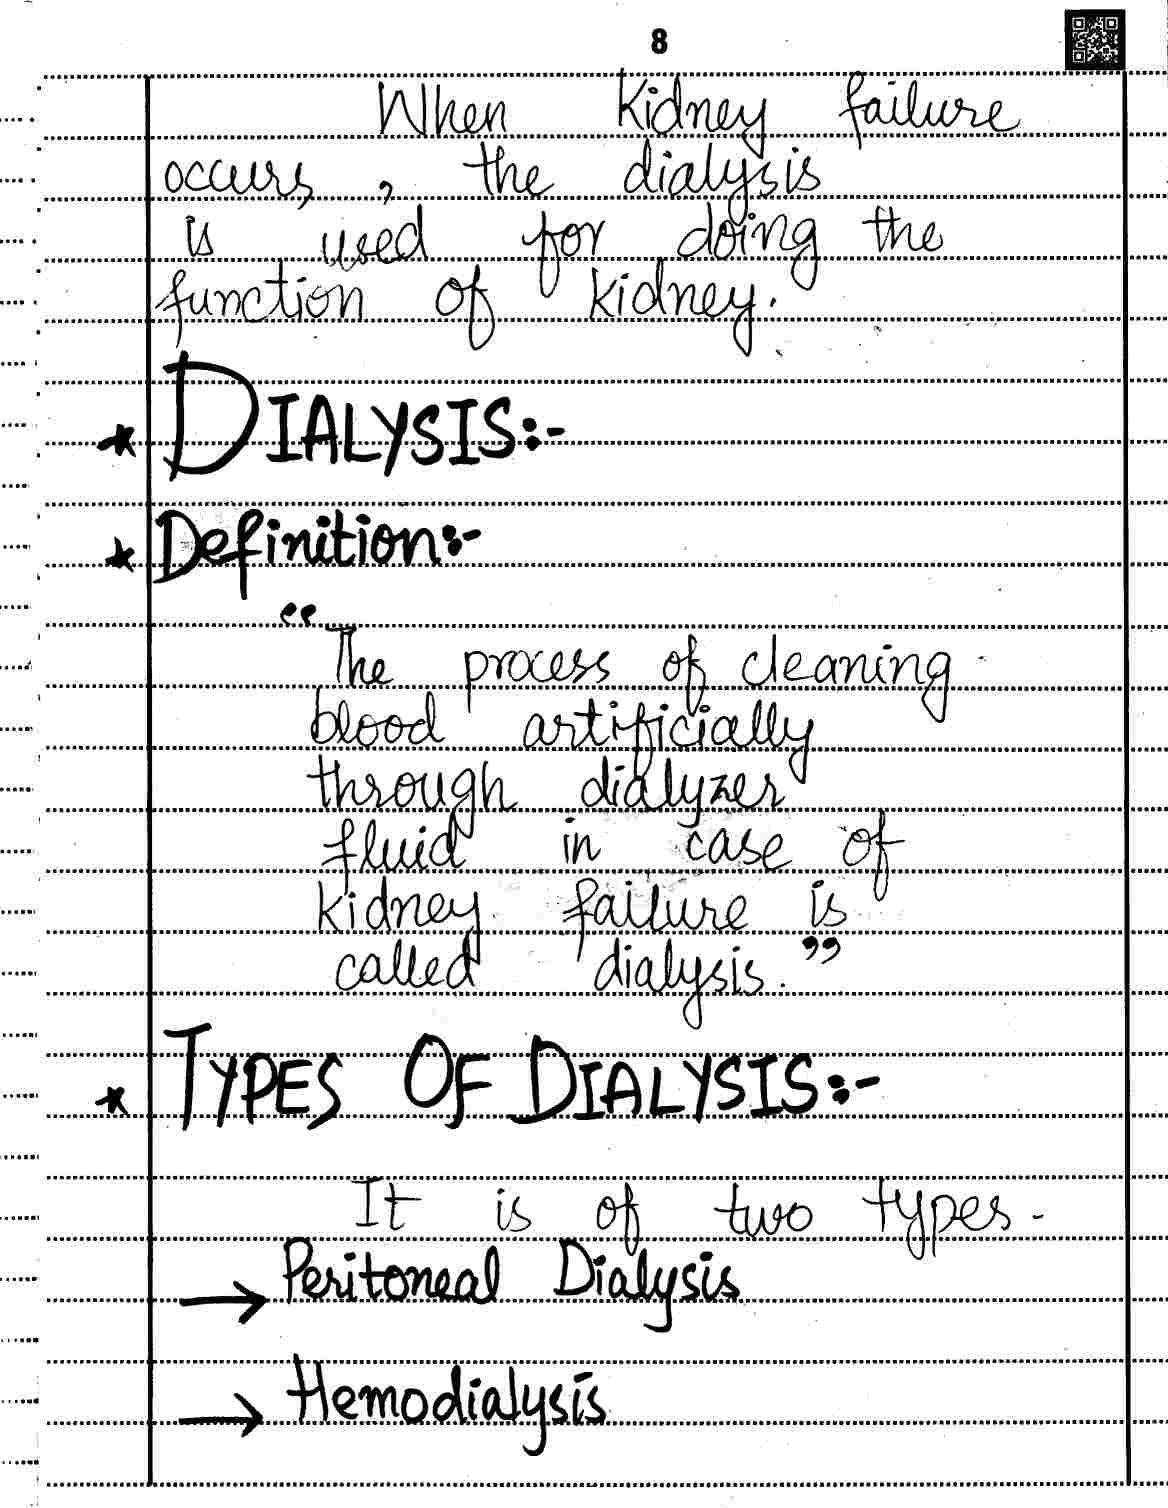 8
When Kidney failure
occurs, , the dialysis
is used for doing the
function of kidney.
* DIALYSIS:-
* Definition:-
“The process of cleaning
blood artificially
through dialyzer
fluid in case of
kidney failure is
called dialysis.”
* TYPES OF DIALYSIS:-
It is of two types.
→ Peritoneal Dialysis
→ Hemodialysis